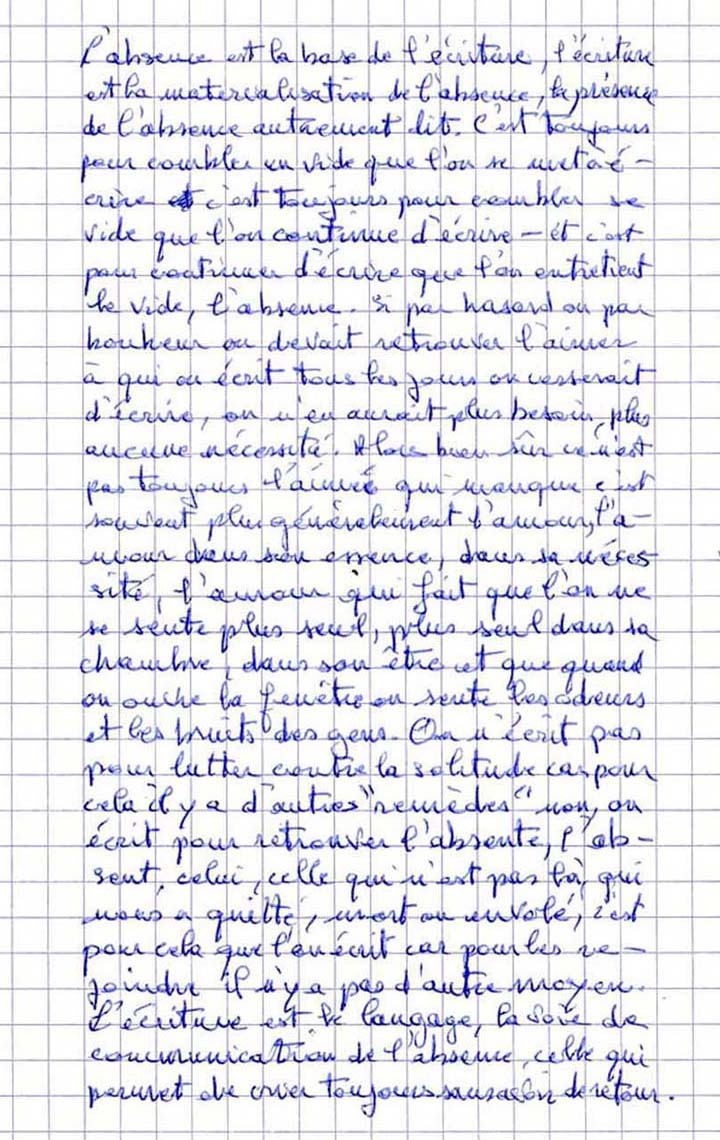 L'absence est la base de l'écriture, l'écriture
est la materialisation de l'absence, la présence
de l'absence autrement dit. C'est toujours
pour combler un vide que l'on se met à é-
crire et c'est toujours pour combler ce
vide que l'on continue d'écrire – et c'est
pour continuer d'écrire que l'on entretient
le vide, l'absence. Si par hasard ou par
bonheur on devait retrouver l'aimer
à qui on écrit tous les jours on cesserait
d'écrire, on n'en aurait plus besoin, plus
aucune nécessité. Alors bien sûr ce n'est
pas toujours l'aimé qui manque c'est
souvent plus généralement l'amour, l'a-
mour dans son essence, dans sa néces
sité, l'amour qui fait que l'on ne
se sente plus seul, plus seul dans sa
chambre, dans son être et que quand
on ouvre la fenêtre on sente les odeurs
et les bruits des gens. On n'écrit pas
pour lutter contre la solitude car pour
cela il y a d'autres "remèdes" non, on
écrit pour retrouver l'absente, l'ab-
sent, celui, celle qui n'est pas là, qui
nous a quitté, mort ou envolé, c'est
pour cela que l'on écrit car pour les re-
joindre il n'y a pas d'autre moyen.
L'écriture est le langage, la voie de
communication de l'absence, celle qui
permet de crier toujours sans de retour.